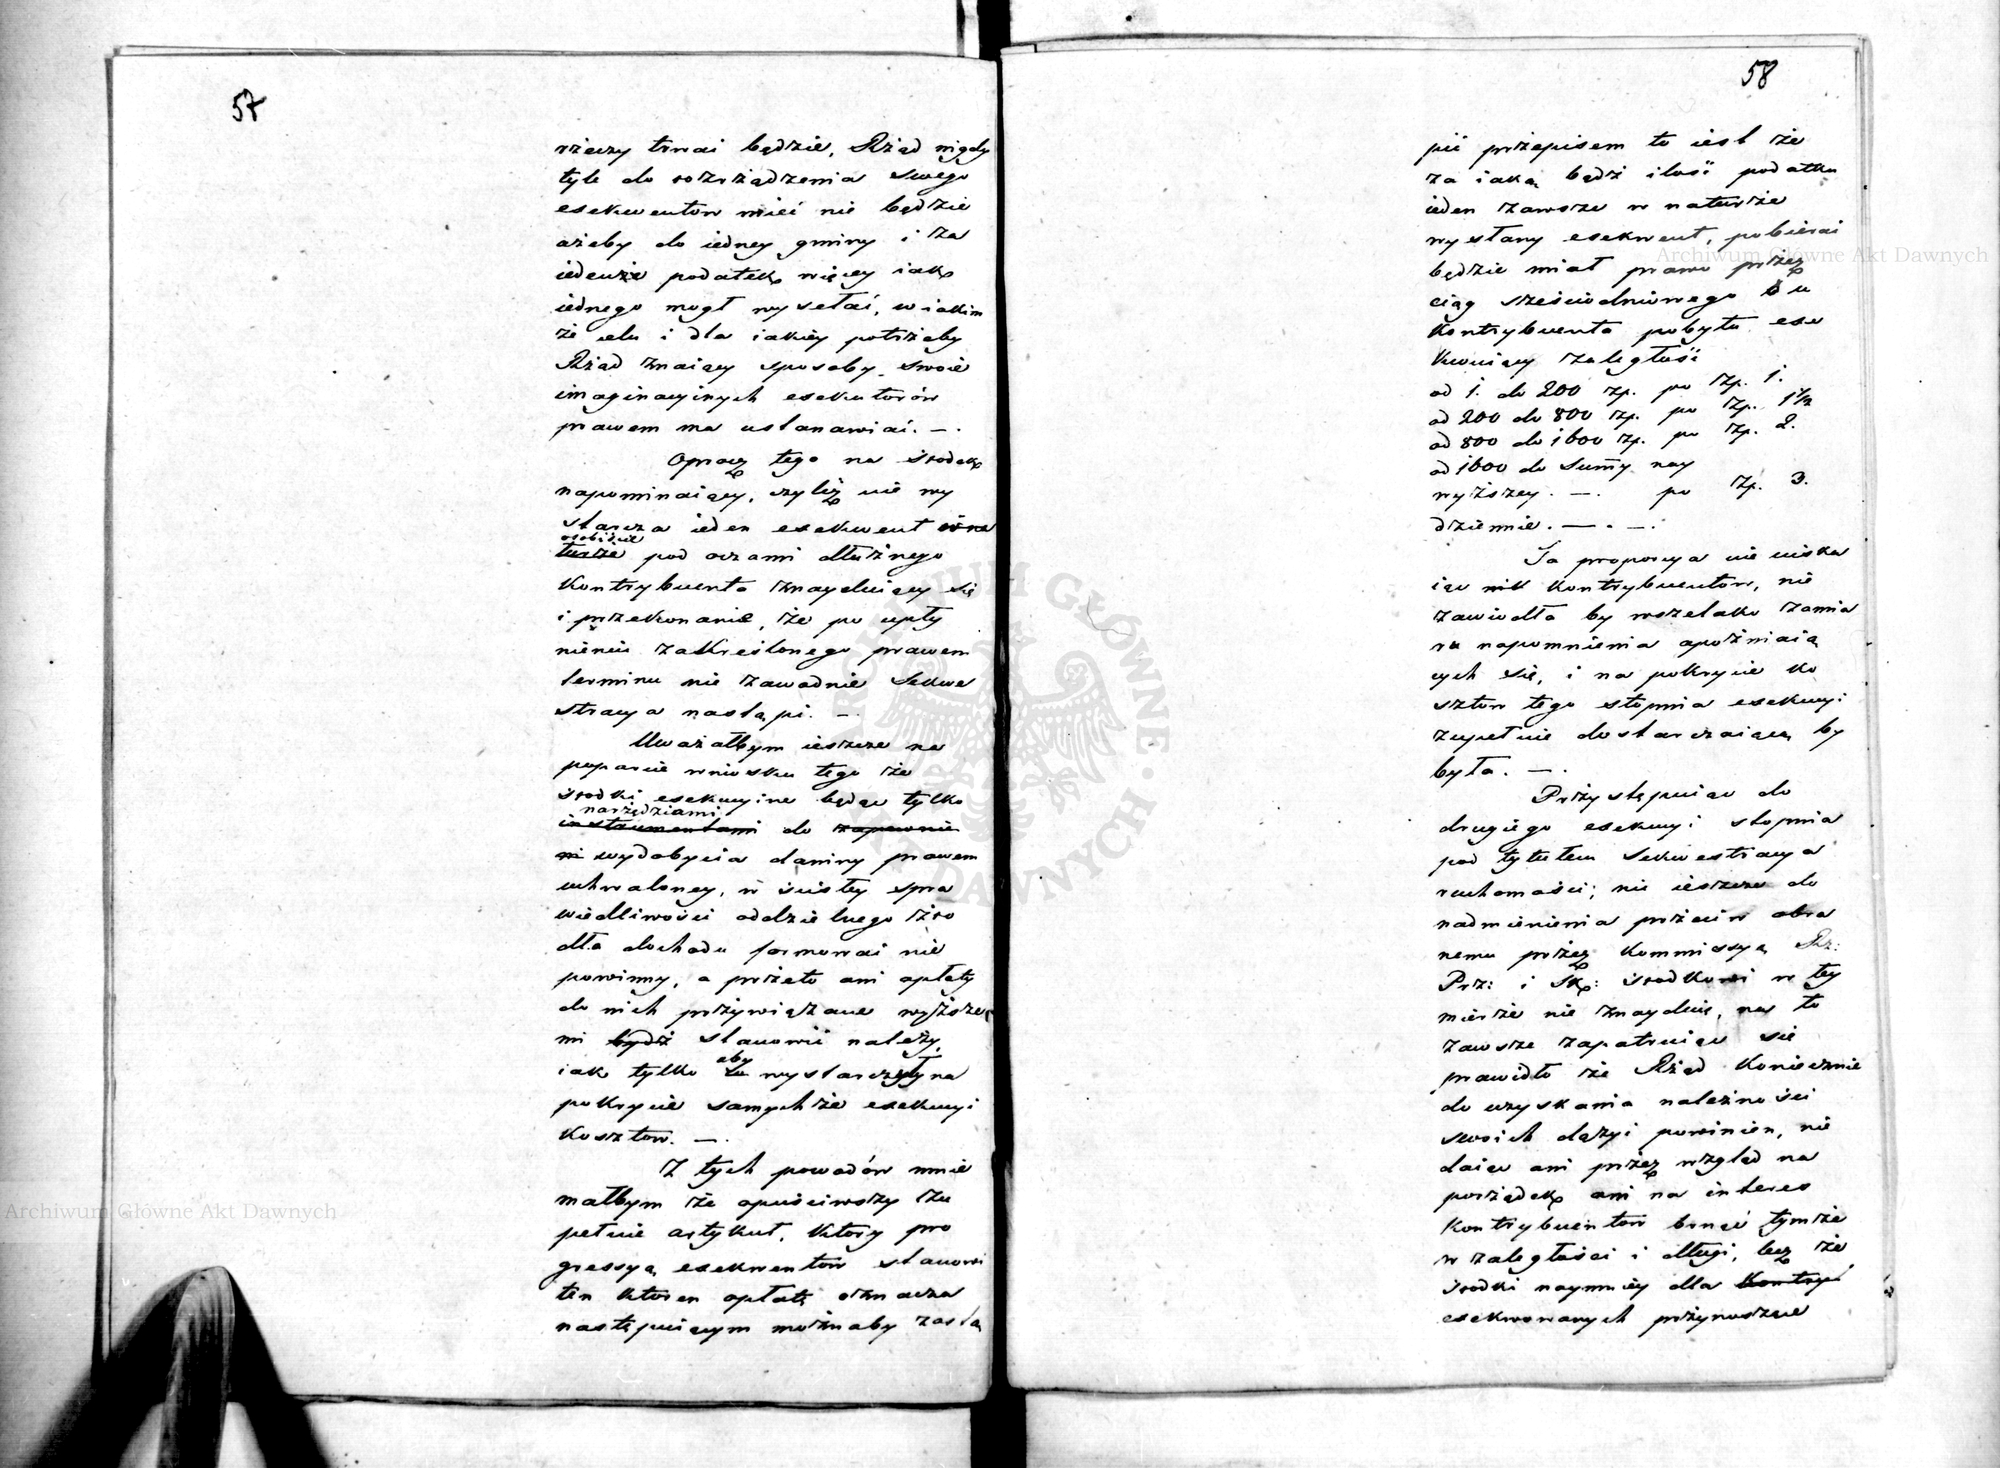 57
rzeczy trwać będzie, Rząd nigdy
tyle do rozrządzenia swego
esekwentow mieć nie będzie
ażeby do iedney gminy i za
iedenże podatek więcey iak
iednego mogł wysełać, w iakim
że celu i dla iakiey potrzeby
Rząd znaiący sposoby swoie
imaginacyinych esekutorów
prawem ma ustanawiać. —.
Oprocz tego na środek
napominaiący, czyliż nie wy
starcza ieden esekwent w na
osobiście
turze pod oczami dłużnego
Kontrybuenta znayduiący się
i przekonanie, że po upły
nieniu zakreślonego prawem
terminu nie zawodnie Sekwe
stracya nastąpi. —.
Uważałbym ieszcze na
poparcie wniosku tego że
środki esekucyine będąc tylko
narzędziami
instrumentami do zapewnie
ni wydobycia daniny prawem
uchwaloney, w ścisłey spra
wiedliwości oddzielnego źro
dła dochodu formować nie
powinny, a przeto ani opłaty
do nich przywiązane wyższe
mi bydź stanowić należy,
aby
iak tylko wystarczyły na
pokrycie samychże esekucyi
Kosztow. —.
Z tych powodów mnie
małbym że opuściwszy zu
pełnie artykuł, ktory pro
gressyą esekwentow stanowi
ten ktoren opłatę oznacza
następuiącym możnaby zastą
58
pić przepisem to iest że
za iaką bądź ilość podatku
ieden zawsze w naturze
wysłany esekwent, pobierać
będzie miał prawo przez
ciąg sześciodniowego u
Kontrybuenta pobytu ese
kwuiący zaległość
od 1. do 200 zp. po zp. 1.
od 200 do 800 zp. po zp. 1½
od 800 do 1600 zp. po zp. 2.
od 1600 do Summy nay
wyższey. —. po zp. 3.
dziennie. — . —.
Ta proporcya nie uciska
iąc nik Kontrybuentow, nie
zawiodła by wszelako zamia
ru napomnienia opoźniaią
cych się, i na pokrycie ko
sztow tego stopnia esekucyi
zupełnie dostarczaiącą by
była. —.
Przystępuiąc do
drugiego esekucyi stopnia
pod tytułem Sekwestracya
ruchomości; nic ieszcze do
nadmienienia przeciw obra
nemu przez Kommissyą Rz:
Prz: i Sk: środkowi w tey
mierze nie znayduię, na to
zawsze zapatruiąc się
prawidło że Rząd koniecznie
do uzyskania należności
swoich dążyć powinien, nie
daiąc ani przez wzgląd na
porządek ani na interes
Kontrybuentow brnąć tymże
w zaległości i długi, lecz że
środki naymniey dla Kontryb
esekwowanych przynoszące